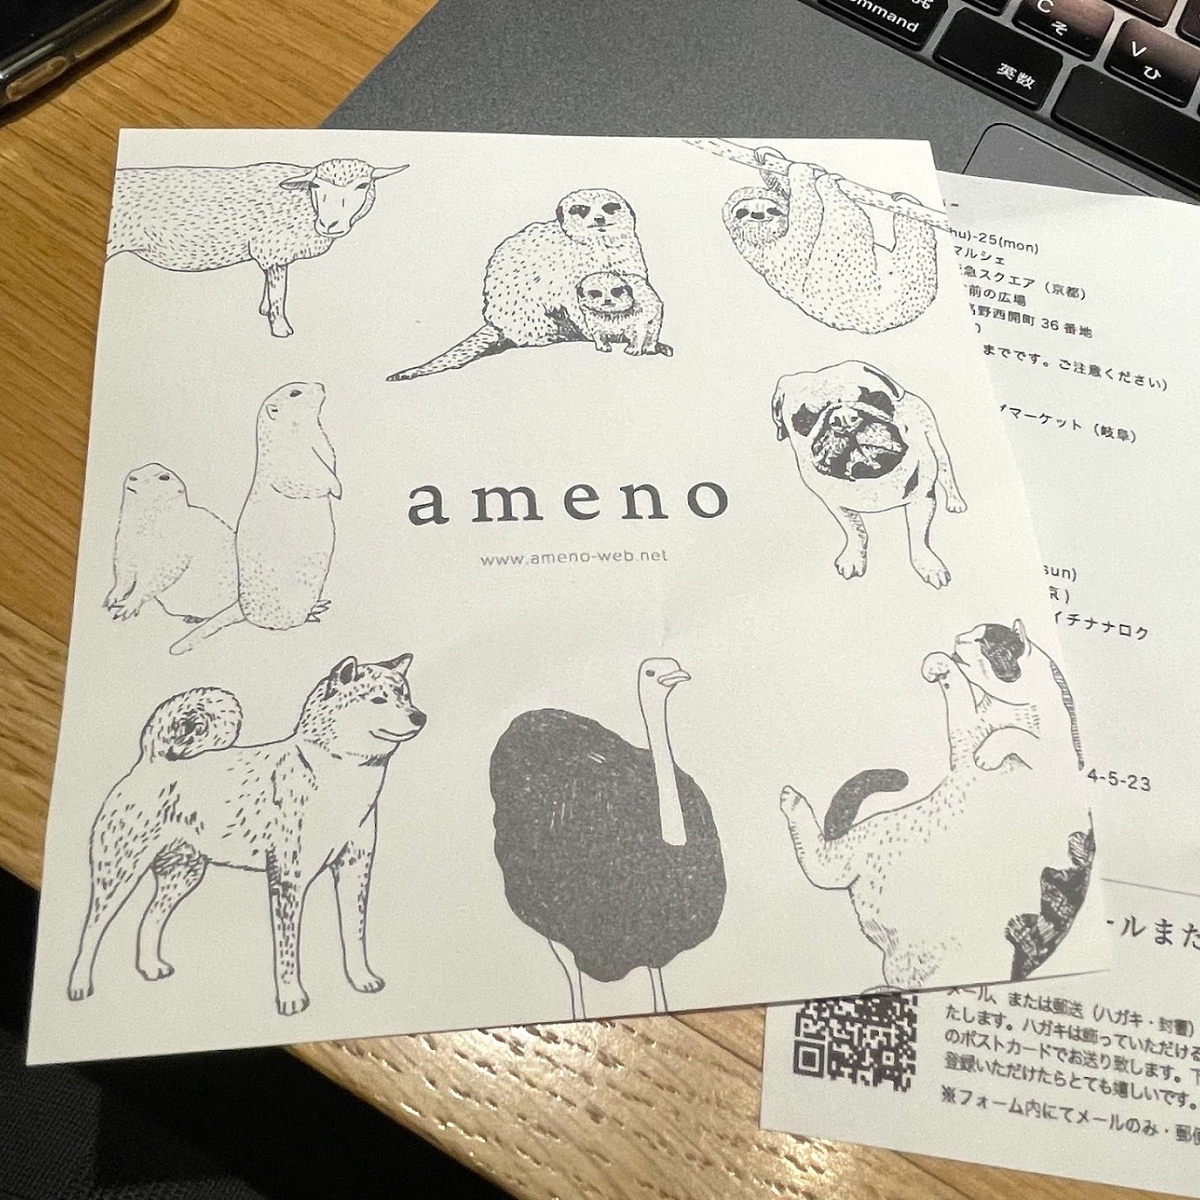 command
C
そ
V
ひ
英数
ameno
www.ameno-web.net
-25(mon)
マルシェ
急スクエア（京都）
前の広場
野西開町 36 番地
までです。ご注意ください）
マーケット（岐阜）
sun)
京）
イチナナロク
4-5-23
ールまた
メール、または郵送（ハガキ・封書）
たします。ハガキは飾っていただける
のポストカードでお送り致します。下
登録いただけたらとても嬉しいです。
※フォーム内にてメールのみ・郵便